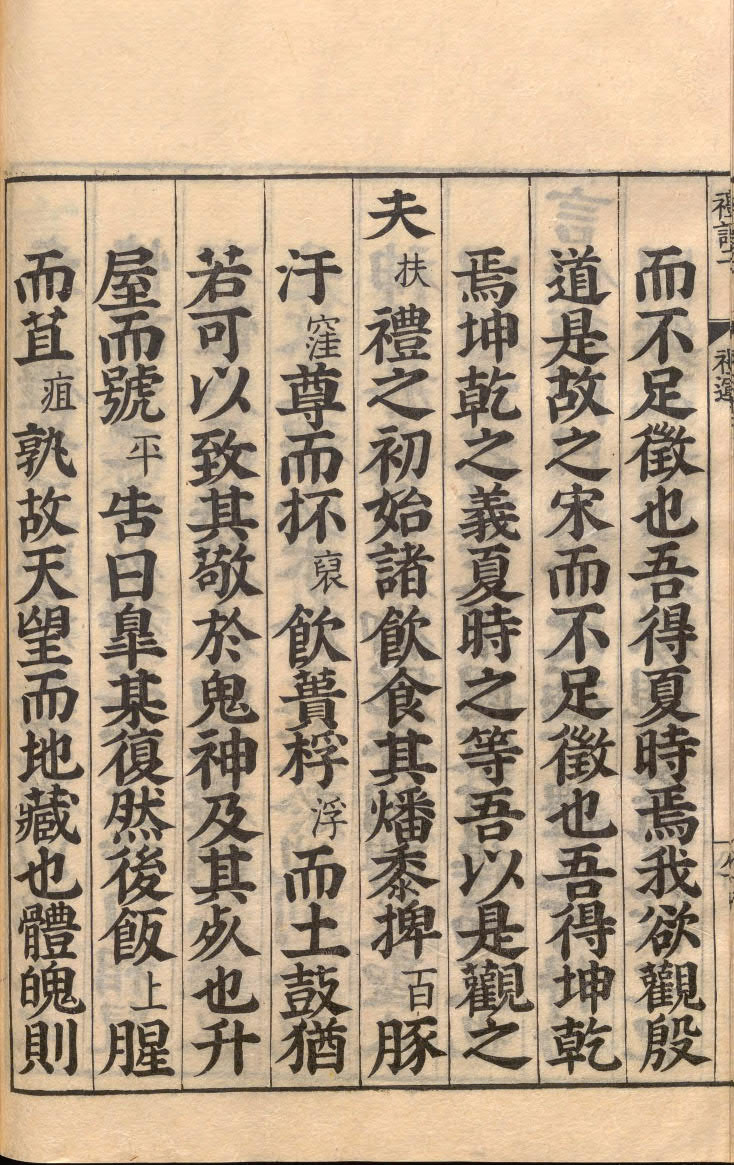 而不足徵也吾得夏時焉我欲觀殷
道是故之宋而不足徵也吾得坤乾
焉坤乾之義夏時之等吾以是觀之
夫扶禮之初始諸飲食其燔黍捭百豚
汙窪尊而抔裒飲蕢桴浮而土鼓猶
若可以致其敬於鬼神及其死也升
屋而號平告曰臯某復然後飯上腥
而苴疽孰故天望而地藏也體魄則